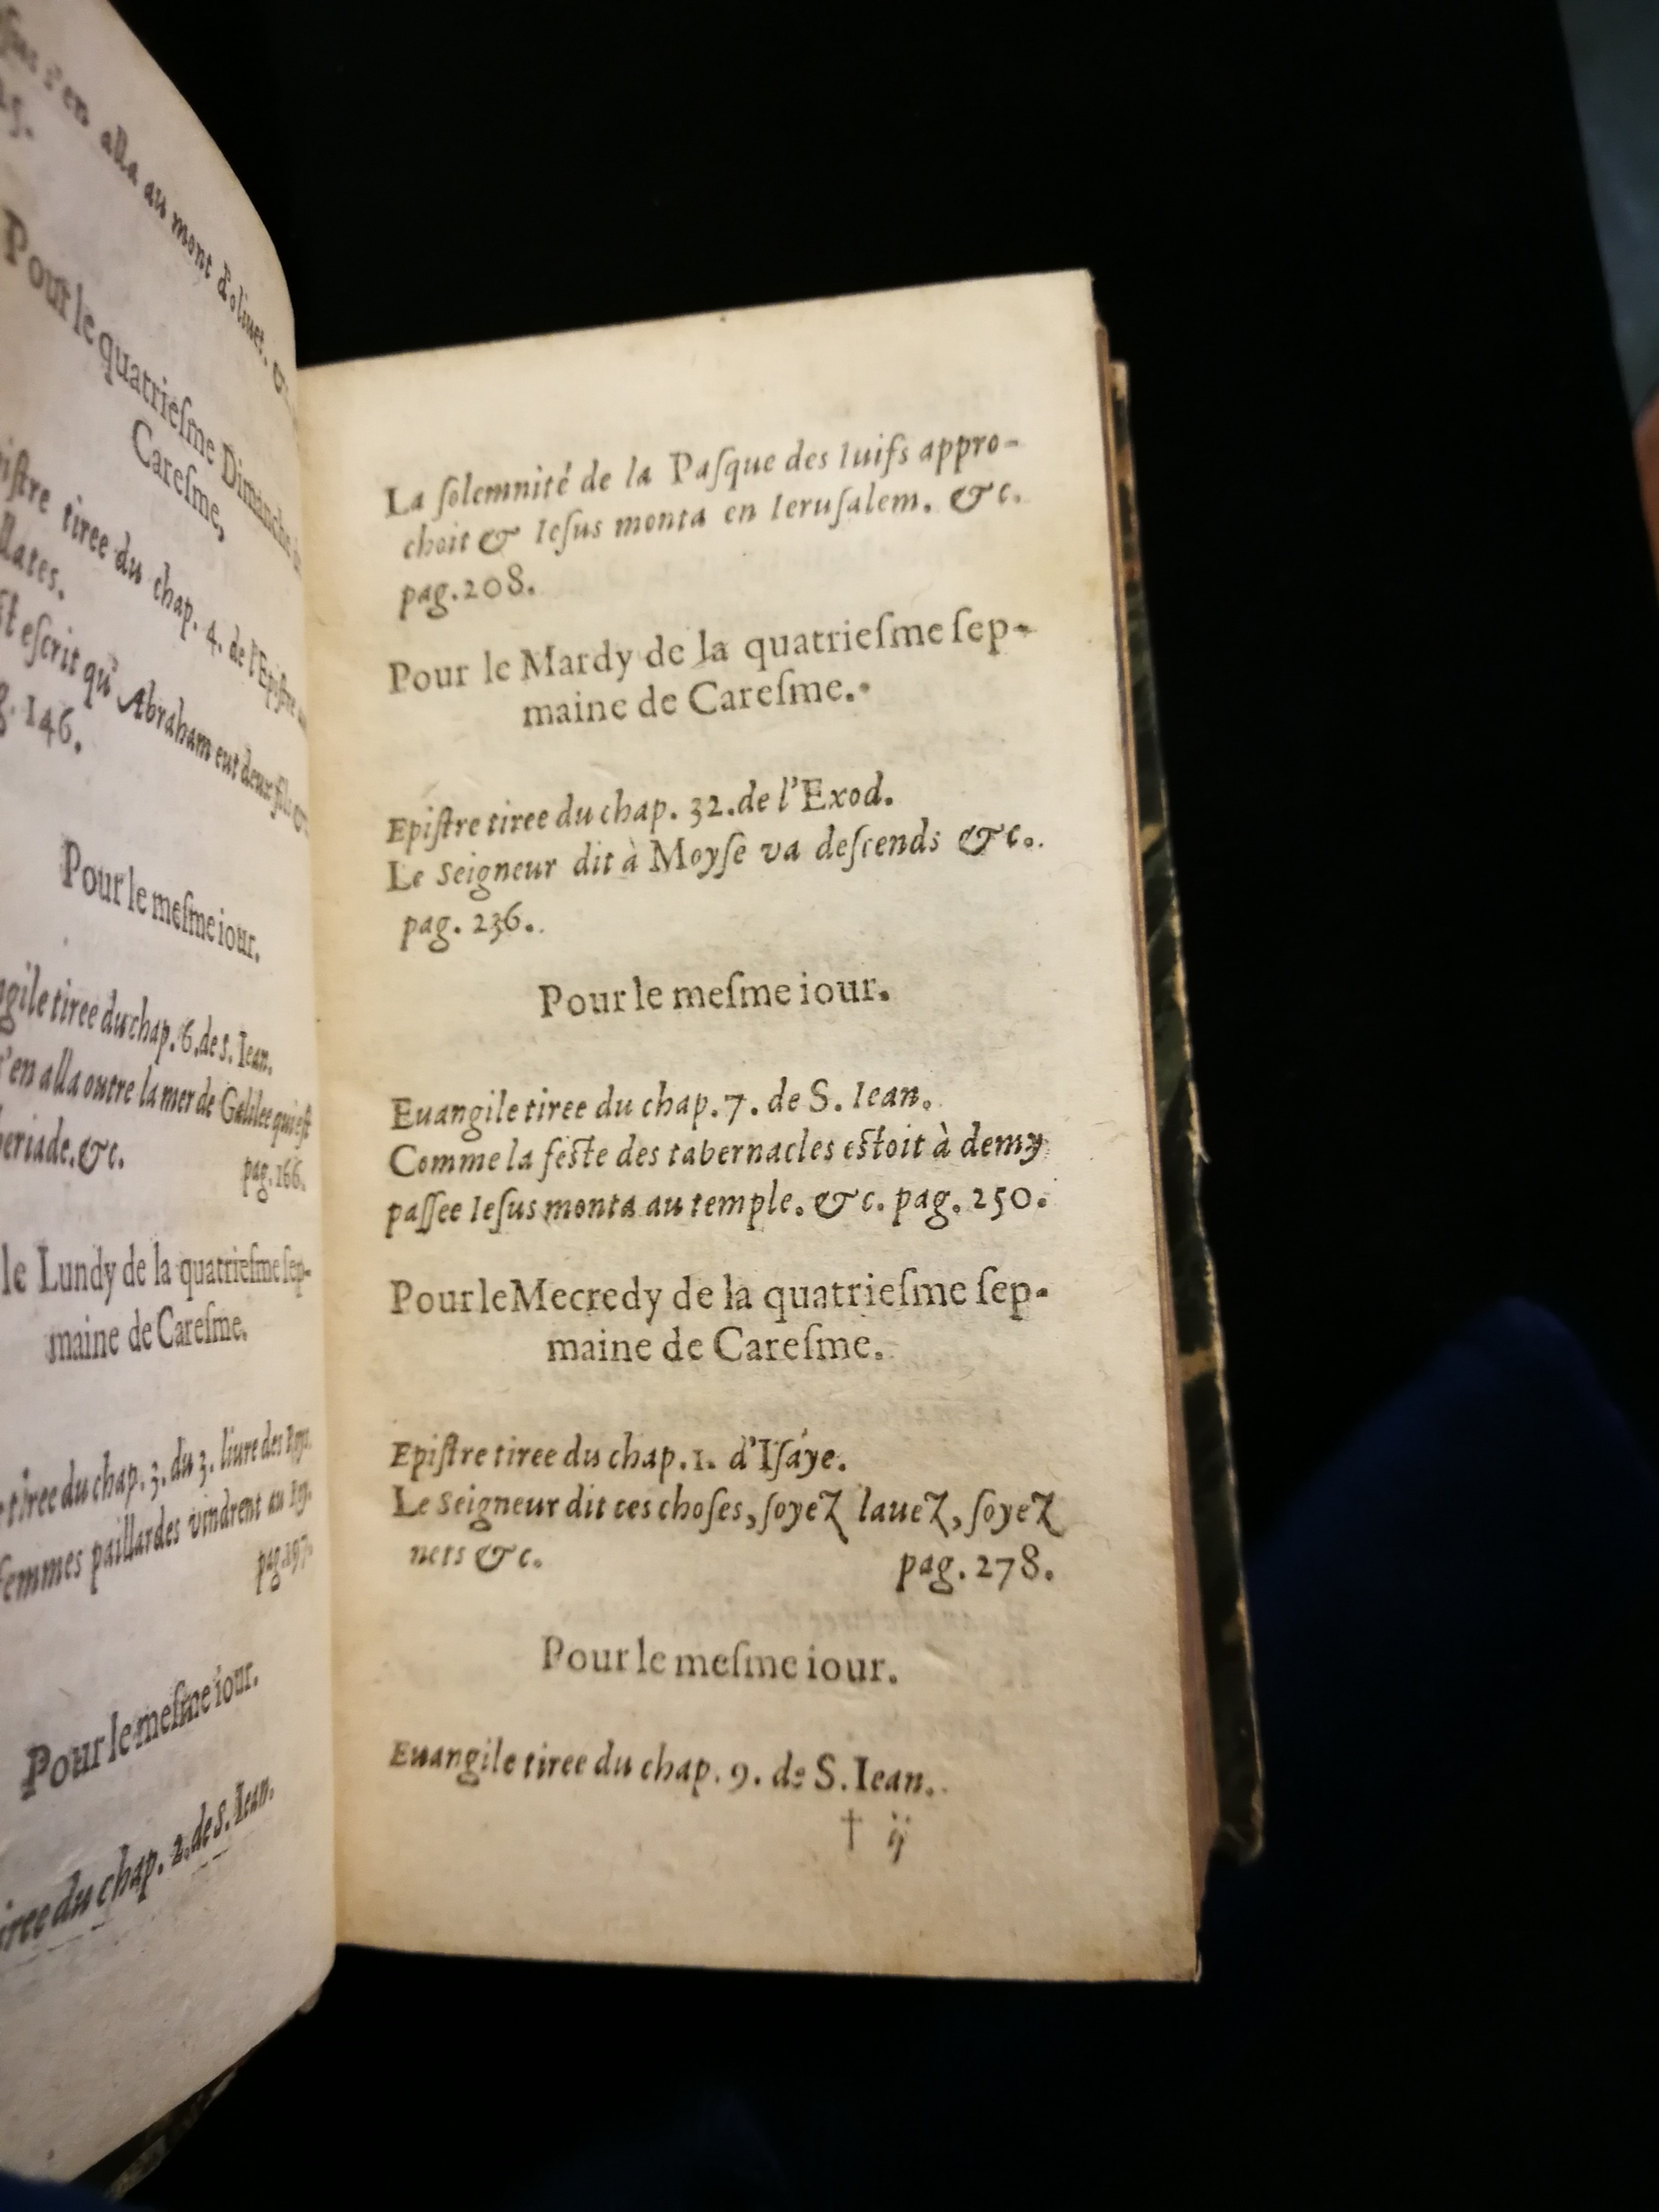 s'en alla au mont d'oliuet. &
Pour le quatriesme Dimanche
Caresme,
tiree du chap. 4. de l'Epistre
escrit qu' Abraham eut deux fils &
146.
Pour le meſme iour.
tiree du chap. 6. de s. Iean.
s'en alla outre la mer de Galilee qui eſt
&c.
pag. 166.
le Lundy de la quatrieſme ſep-
maine de Careſme.
tiree du chap. 3. du 3. liure des Roys.
femmes paillardes vindrent au Roy.
pag. 197.
Pour le meſme iour.
du chap. 2. de S. Iean.
La ſolemnité de la Paſque des Iuifs appro-
choit & Ieſus monta en Ieruſalem. &c.
pag. 208.
Pour le Mardy de la quatrieſme ſep-
maine de Careſme.
Epiſtre tiree du chap. 32. de l'Exod.
Le Seigneur dit à Moyſe va deſcends &c.
pag. 236.
Pour le meſme iour.
Euangile tiree du chap. 7. de S. Iean.
Comme la feſte des tabernacles eſtoit à demy
paſſee Ieſus monta au temple. &c. pag. 250.
Pour le Mecredy de la quatrieſme ſep-
maine de Careſme.
Epiſtre tiree du chap. 1. d'Iſáye.
Le Seigneur dit ces choſes, ſoyez lauez, ſoyez
nets &c. pag. 278.
Pour le meſme iour.
Euangile tiree du chap. 9. de S. Iean.
† ij